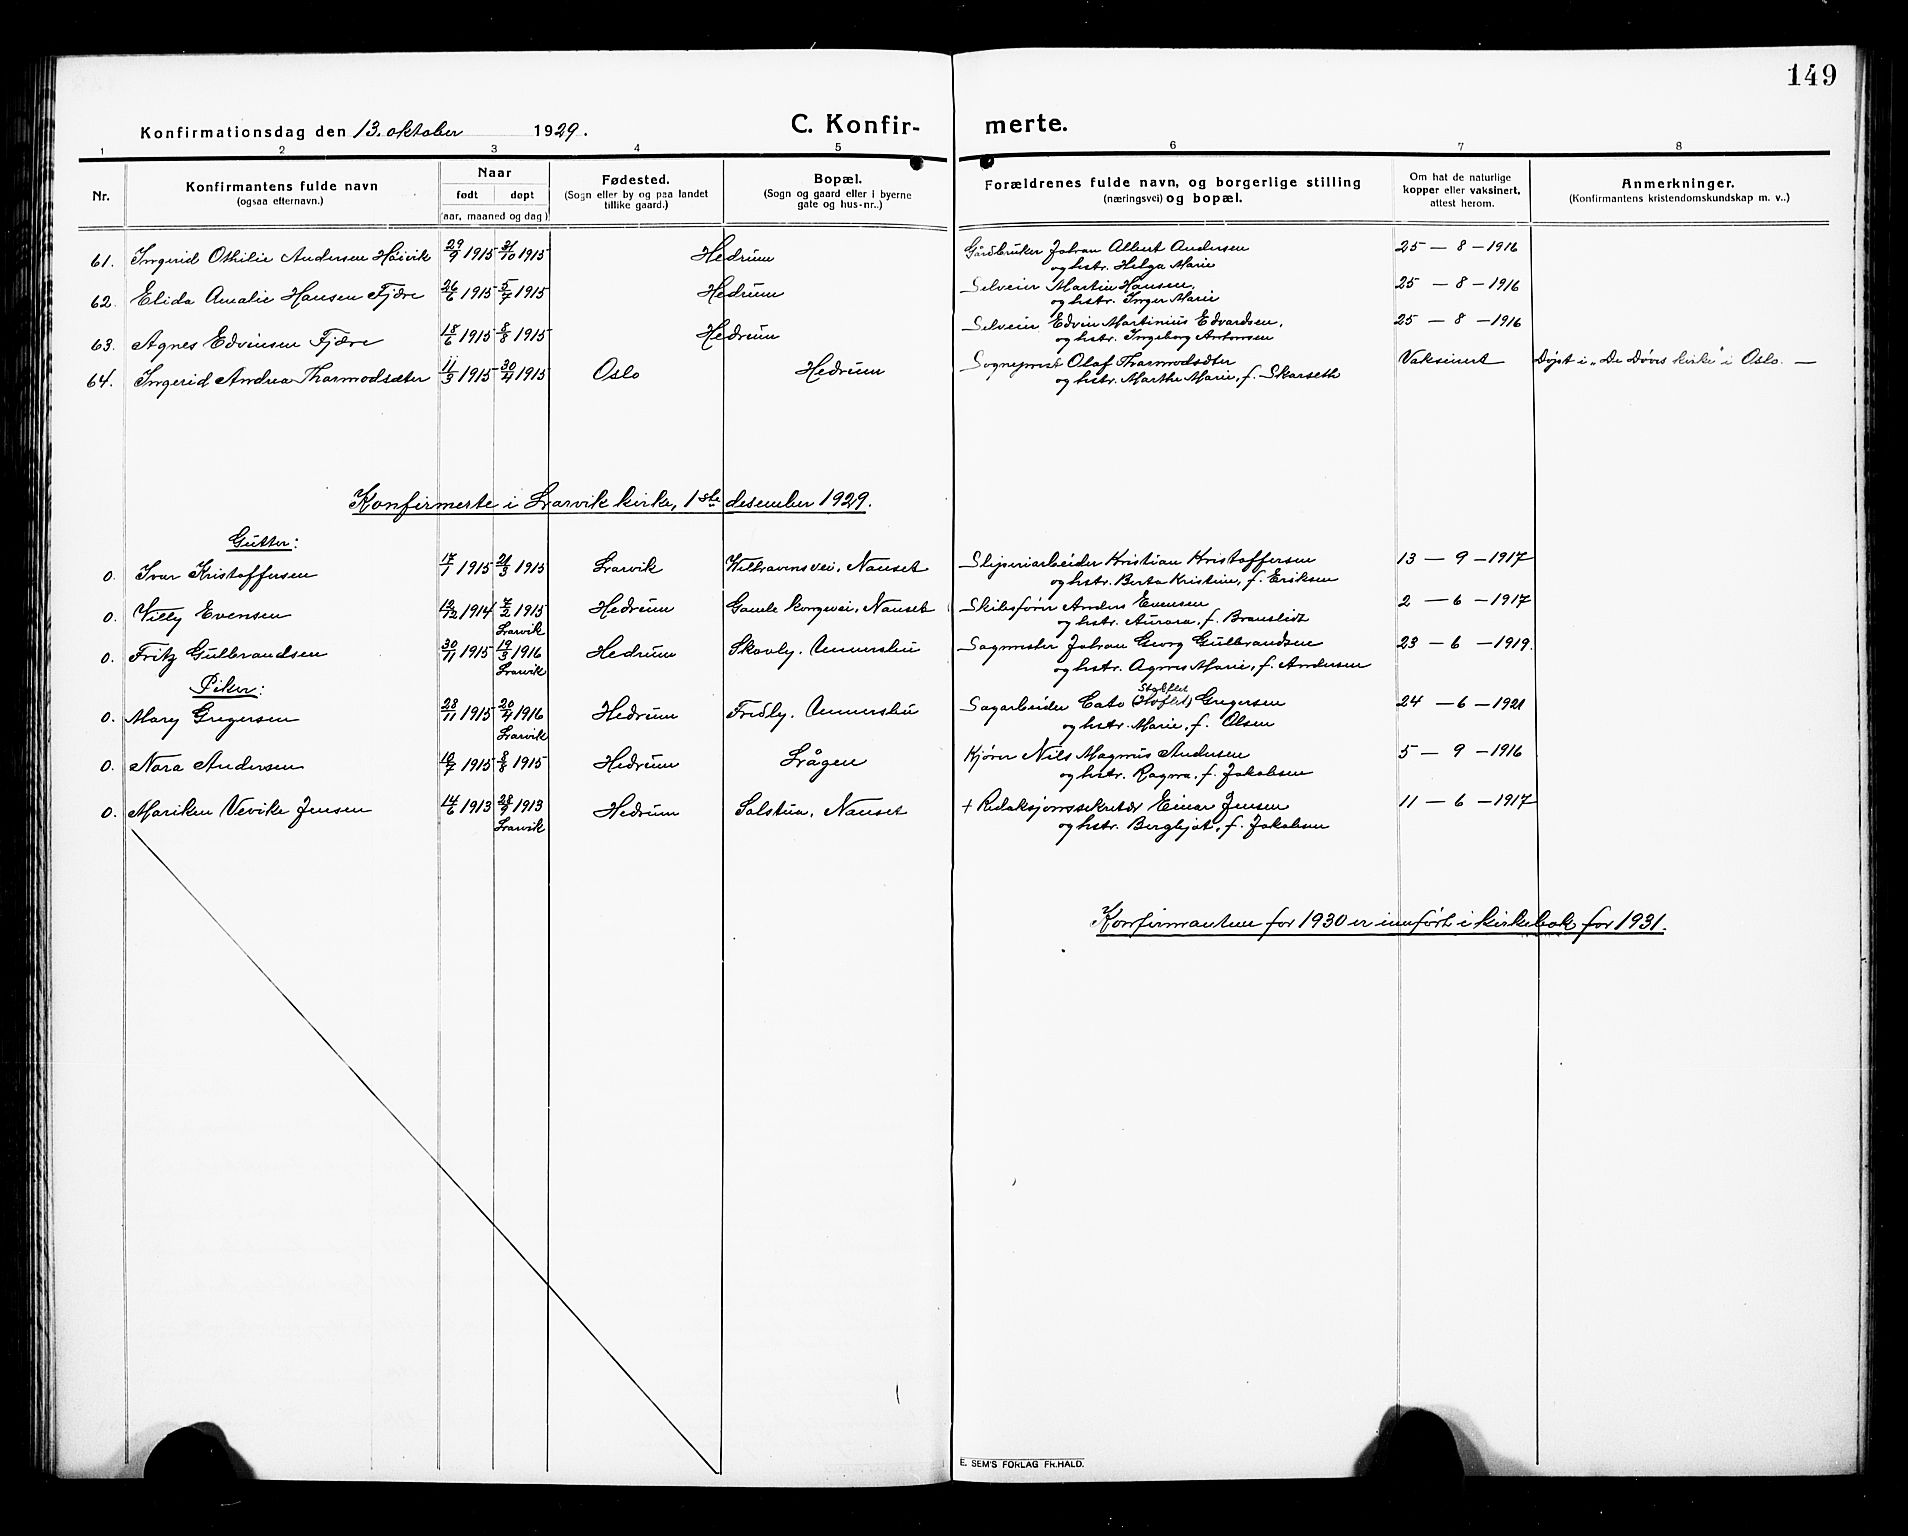 149
Konfirmationsdag den 13. oktober 1929.
C. Konfir- merte.
1 2 3 4 5 6 7 8
Nr.
Konfirmantens fulde navn
(ogsaa efternavn.)
Naar
født døpt
(aar, maaned og dag)
Fødested.
(Sogn eller by og paa landet
tillike gaard.)
Bopæl.
(Sogn og gaard eller i byerne
gate og hus-nr..)
Forældrenes fulde navn, og borgerlige stilling
(næringsvei) og bopæl.
Om hat de naturlige
kopper eller vaksinert,
attest herom.
Anmerkninger.
(Konfirmantens kristendomskundskap m. v..)
61. Ingerid Othilie Andersen Håivik 29/9 1915 31/10 1915 Hedrum Gårdbruker Johan Albert Andersen 25 - 8 - 1916
og hstr. Helga Marie
62. Elida Amalie Hansen Fjære 26/6 1915 5/7 1915 Hedrum Selveier Martin Hansen, 25 - 8 - 1916
og hstr. Inger Marie
63. Agnes Edvinsen Fjære 18/6 1915 8/8 1915 Hedrum Selveier Edvin Martinius Edvardsen, 25 - 8 - 1916
og hstr. Ingeborg Antonsen
64. Ingerid Andrea Thormodsæter 11/3 1915 30/4 1915 Oslo Hedrum Sogneprest Olaf Thormodsæter Vaksinert Døpt i „De Døves kirke" i Oslo. —
og hstr. Marthe Marie, f. Skarseth
Konfirmerte i Larvik kirke, 1ste desember 1929.
Gutter:
0. Ivar Kristoffersen 17/1 1915 21/3 1915 Larvik Nanset Sliperiarbeider Kristian Kristoffersen 13 - 9 - 1917
og hstr. Berta Kristine, f. Eriksen
0. Willy Evensen 1914 7/2 1915 Hedrum Gamle kongevei, Nanset Skibsfører Anders Evensen 2 - 6 - 1917
Larvik og hstr. Aurora, f.
0. Fritz Gulbrandsen 30/11 1915 19/3 1916 Hedrum Skovly. Sagmester Johan Georg Gulbrandsen 23 - 6 - 1919.
Larvik og hstr. Agnes Marie, f. Andersen
Piker:
0. Mary Gregersen 28/11 1915 20/4 1916 Hedrum Fredly. Sagarbeider Cato Gregersen 24 - 6 - 1921
Larvik og hstr. Marie, f. Olsen
0. Nora Andersen 1915 8/8 1915 Hedrum Lågen Kjører Nils Magnus Andersen 5 - 9 - 1916
og hstr. Ragna, f. Jakobsen
0. Mariken Vivike Jensen 14/6 1913 28/9 1913 Hedrum Solstua, Nanset + Redaksjonssekretær Einar Jensen 11 - 6 - 1917
Larvik og hstr. Bergljot, f. Jakobsen
Konfirmanten for 1930 er innført i kirkebok for 1931.
E. SEM'S FORLAG FR.HALD.